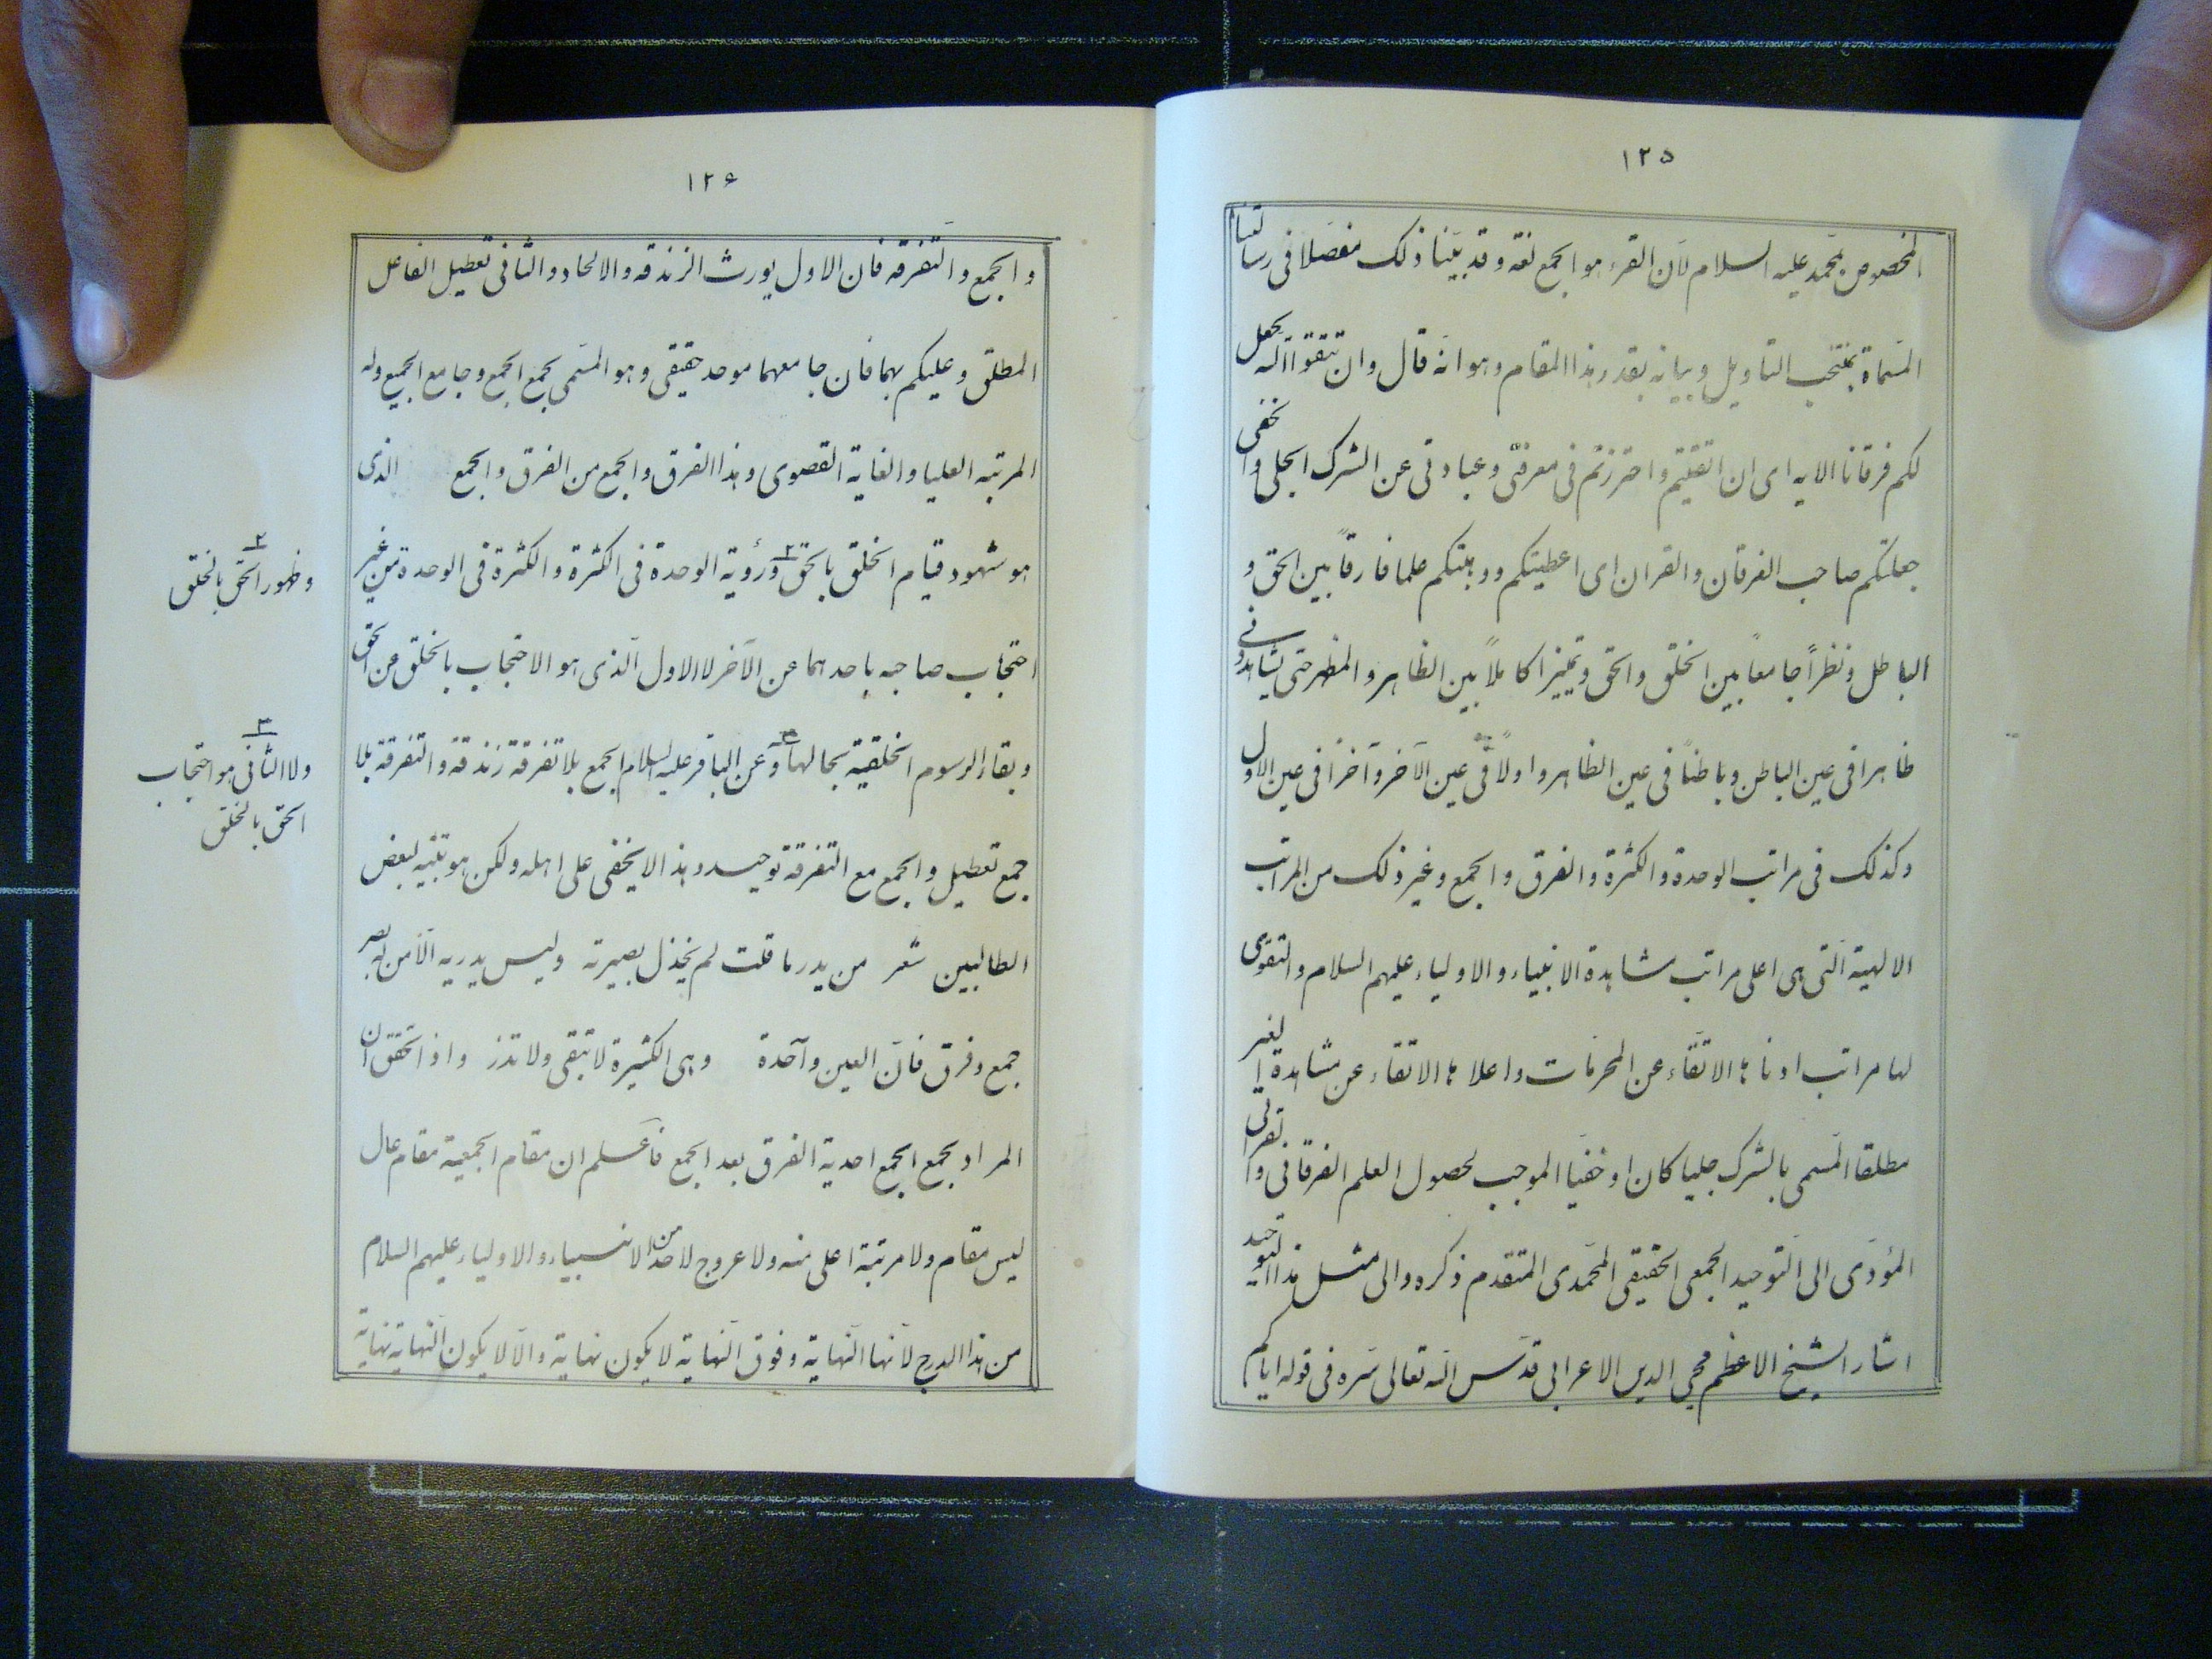 ١٢٥
المخصوص بمحمد عليه السلام لأن القرء هو الجمع لغة وقد بيّنا ذلك مفصّلا فى رسالتنا
المسمّاة بمنتخب التاويل وبيانه بقدر هذا المقام وهو انّه قال وان تتقوا الله يجعل
لكم فرقانا الايه اى ان اتقيتم واحترزتم فى معرفتى وعبادتى عن الشرك الجلى والخفى
جعلتكم صاحب الفرقان والقران اى اعطيتكم ووهبتكم علما فارقاً بين الحق و
الباطل ونظراً جامعاً بين الخلق والحق وتمييزا كاملاً بين الظاهر والمظهر حتى تشاهدونى
ظاهرا فى عين الباطن وباطناً فى عين الظاهر واولاً فى عين الآخر وآخراً فى عين الاول
وكذلك فى مراتب الوحدة والكثرة والفرق والجمع وغير ذلك من المراتب
الالهية الّتى هى اعلى مراتب مشاهدة الانبياء والاولياء عليهم السلام والتقوى
لها مراتب ادناها الاتقاء عن المحرمات واعلاها الاتقاء عن مشاهدة الغير
مطلقا المسّمى بالشرك جليا كان او خفيّا الموجب لحصول العلم الفرقانى والقرانى
المؤدّى الى التّوحيد الجمعى الحقيقى المحمّدى المتقدم ذكره والى مثل هذا التوحيد
اشار الشيخ الاعظم محيى الدين الاعرابى قدّس الله تعالى سّره فى قوله اياكم
١٢۶
والجمع والتّفرقه فان الاول يورث الزندقه والالحاد والثانى تعطيل الفاعل
المطلق وعليكم بهما فان جامعهما موحد حقيقى وهو المسّمى بجمع الجمع وجامع الجميع وله
المرتبه العليا والغاية القصوى وهذا الفرق والجمع من الفرق والجمع الذى
هو شهود قيام الخلق بالحق ٢ ورؤية الوحدة فى الكثرة والكثرة فى الوحدة من غير
٢ وظهور الحق بالخلق
احتجاب صاحبه باحدهما عن الآخر لا الاول الّذى هو الاحتجاب بالخلق عن الحق
وبقاء الرسوم الخلقية بحالها ٣ وعن الباقر عليه السلام الجمع بلا تفرقة زندقة والتفرقة بلا
٣ ولا الثانى هو احتجاب
الحق بالخلق
جمع تعطيل والجمع مع التفرقة توحيد وهذا لا يخفى على اهله ولكن هو تنبيه لبعض
الطالبين شعر من يدر ما قلت لم يخذل بصيرته وليس يدريه الّا من له بصر
جمع وفرق فان العين واحدة وهى الكثيرة لا تبقى ولا تذر واذا تحقق ان
المراد بجمع الجمع احدية الفرق بعد الجمع فاعلم ان مقام الجمعية مقام عال
ليس مقام ولا مرتبة اعلى منه ولا عروج لاحد من الانبياء والاولياء عليهم السلام
من هذا الدرج لانّها النّهاية وفوق النّهاية لا يكون نهاية والّا لا يكون النّهاية نهاية